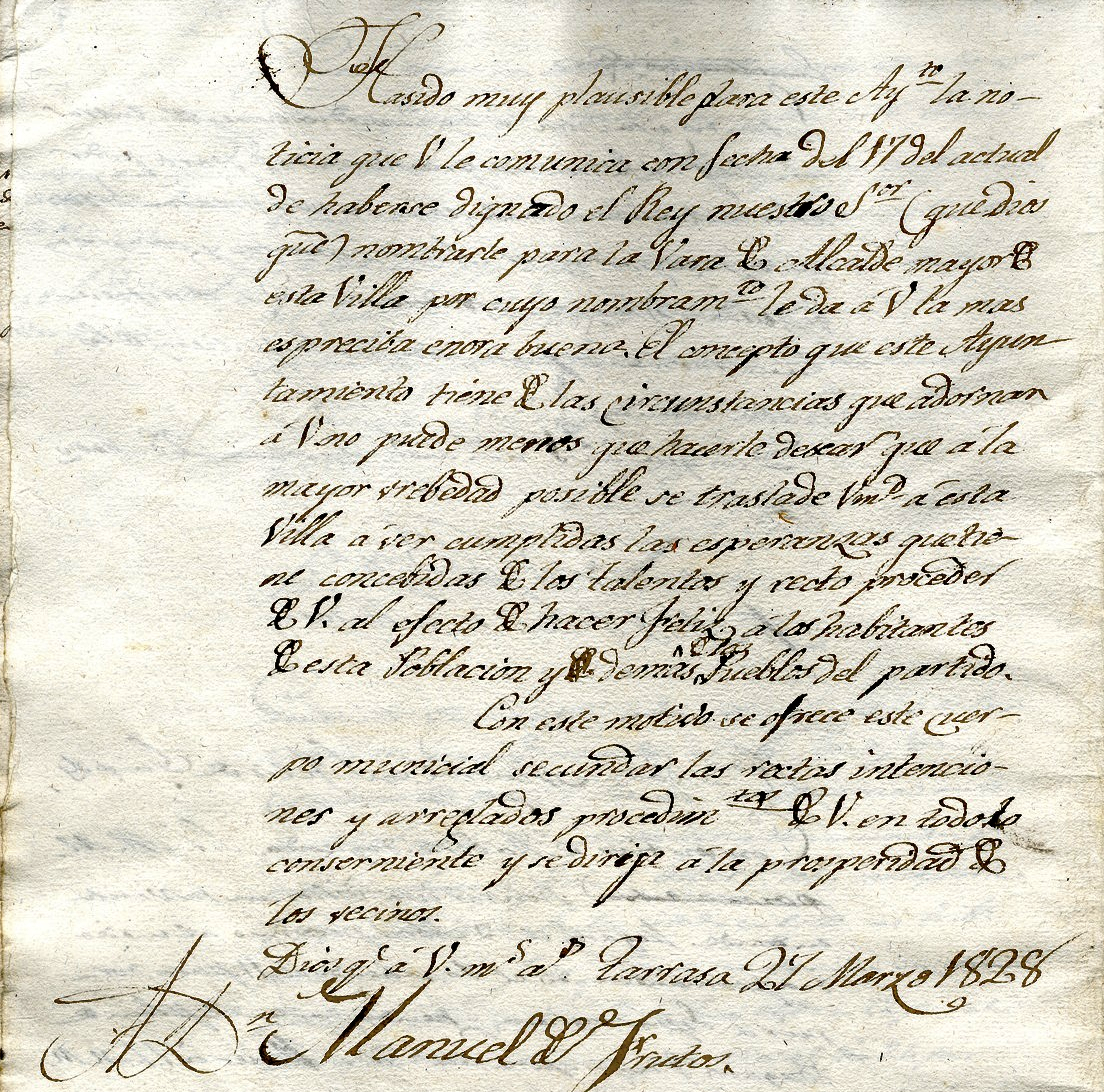 Ha sido muy plausible para este Ay.to la no-
ticia que V le comunica con fecha del 17 del actual
de haberse dignado el Rey nuestro S.or (que Dios
gue) nombrarle para la Vara de Alcalde mayor de
esta Villa por cuyo nombram.to le da á V la mas
espreciba enora buena. El concepto que este Ayun-
tamiento tiene de las circunstancias que adornan
á V. no puede menos que hacerle desear que á la
mayor vrebedad posible se traslade Vmd á esta
Villa á ver cumplidas las esperanzas que tie-
ne concebidas de los talentos y recto proceder
de V. al efecto de hacer feliz á los habitantes
de esta Poblacion y demás Pueblos del partido.
Con este motivo se ofrece este cuer-
po municial secundar las rectas intencio-
nes y arreglados procedim.tos de V. en todo lo
conserniente y se dirija á la prosperidad de
los vecinos.
Dios g.e á V. m.s a.s Tarrasa 27 Marzo 1828
A D.n Manuel de Frutos.